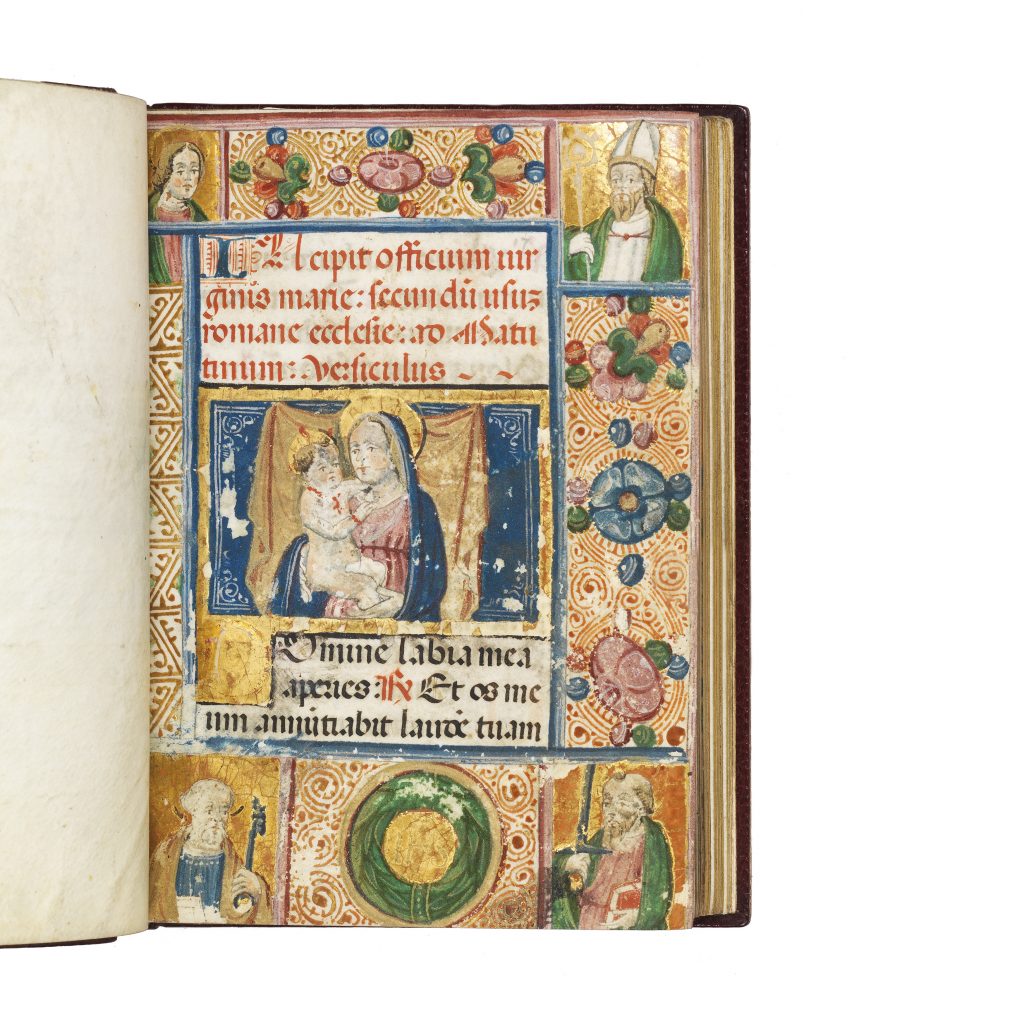 INcipit officium uir
ginis marie: secundũ usuz
romane ecclesie: ad Matu
tinum: Versiculus
Domine labia mea
aperies: ℟ Et os me
um annũtiabit laudẽ tuam